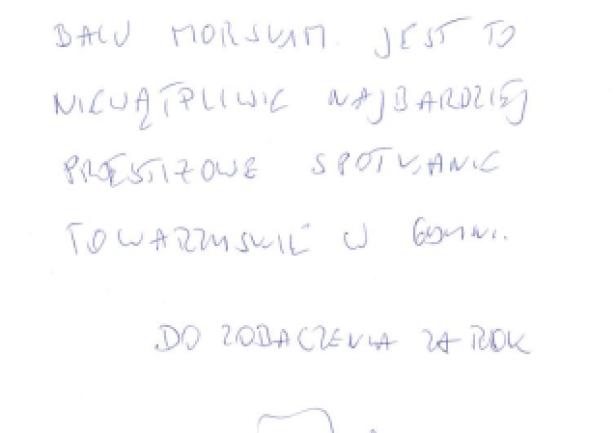 BALU MORSKIM. JEST TO
NIEWĄTPLIWIE NAJBARDZIEJ
PRESTIŻOWE SPOTKANIE
TOWARZYSKIE W GDYNI.
DO ZOBACZENIA ZA ROK